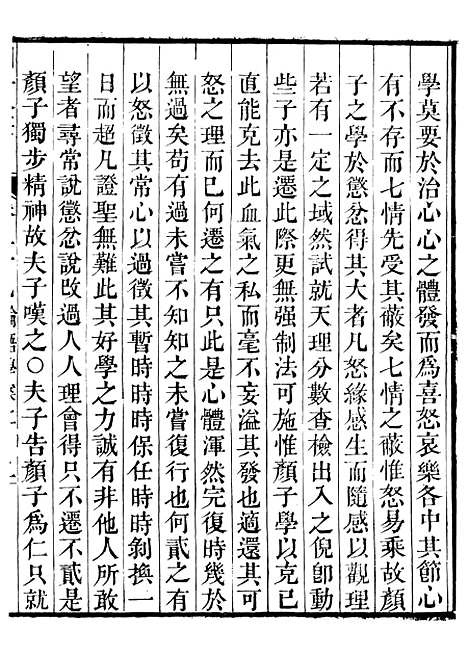 學莫要於治心心之體發而爲喜怒哀樂各中其節心
有不存而七情先受其蔽矣七情之蔽惟怒易乘故顏
子之學於懲忿得其大者凡怒緣感生而隨感以觀理
若有一定之域然試就天理分數查檢出入之倪卽動
些子亦是遷此際更無强制法可施惟顏子學以克已
直能克去此血氣之私而毫不妄溢其發也適還其可
怒之理而已何遷之有只此是心體渾然完復時幾於
無過矣苟有過未嘗不知知之未嘗復行也何貳之有
以怒徵其常心以過徵其暫時時保任時時剝換一
日而超凡證聖無難此其好學之力誠有非他人所敢
望者尋常說懲忿說改過人人理會得只不遷不貳是
顏子獨步精神故夫子嘆之○夫子告顏子爲仁只就